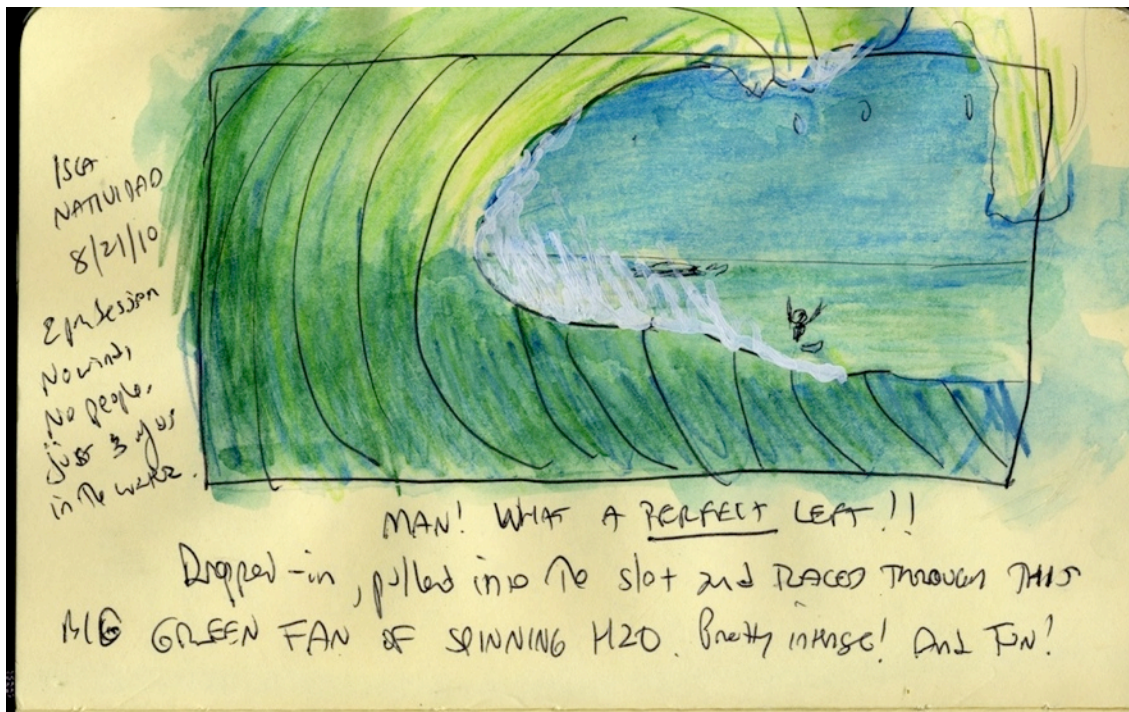 ISLA
NATIVIDAD
8/21/10
2 pm session
No wind,
No people,
just 3 of us
in the water.
MAN! WHAT A PERFECT LEFT!!
Dropped-in, pulled into the slot and RACED THROUGH THIS
BIG GREEN FAN OF SPINNING H2O. Pretty intense! And FUN!